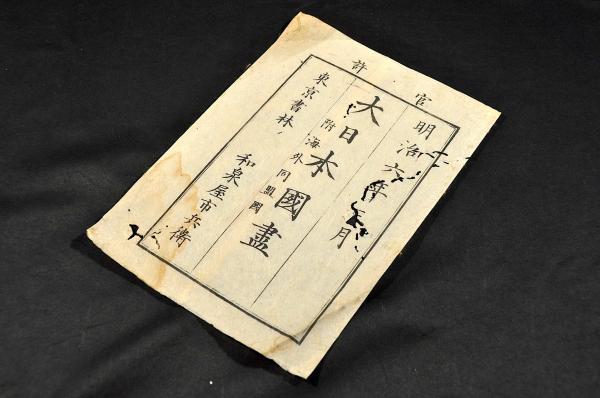 官許
明治六年月
大日本國盡
附海外同盟國
東京書林
和泉屋市兵衛